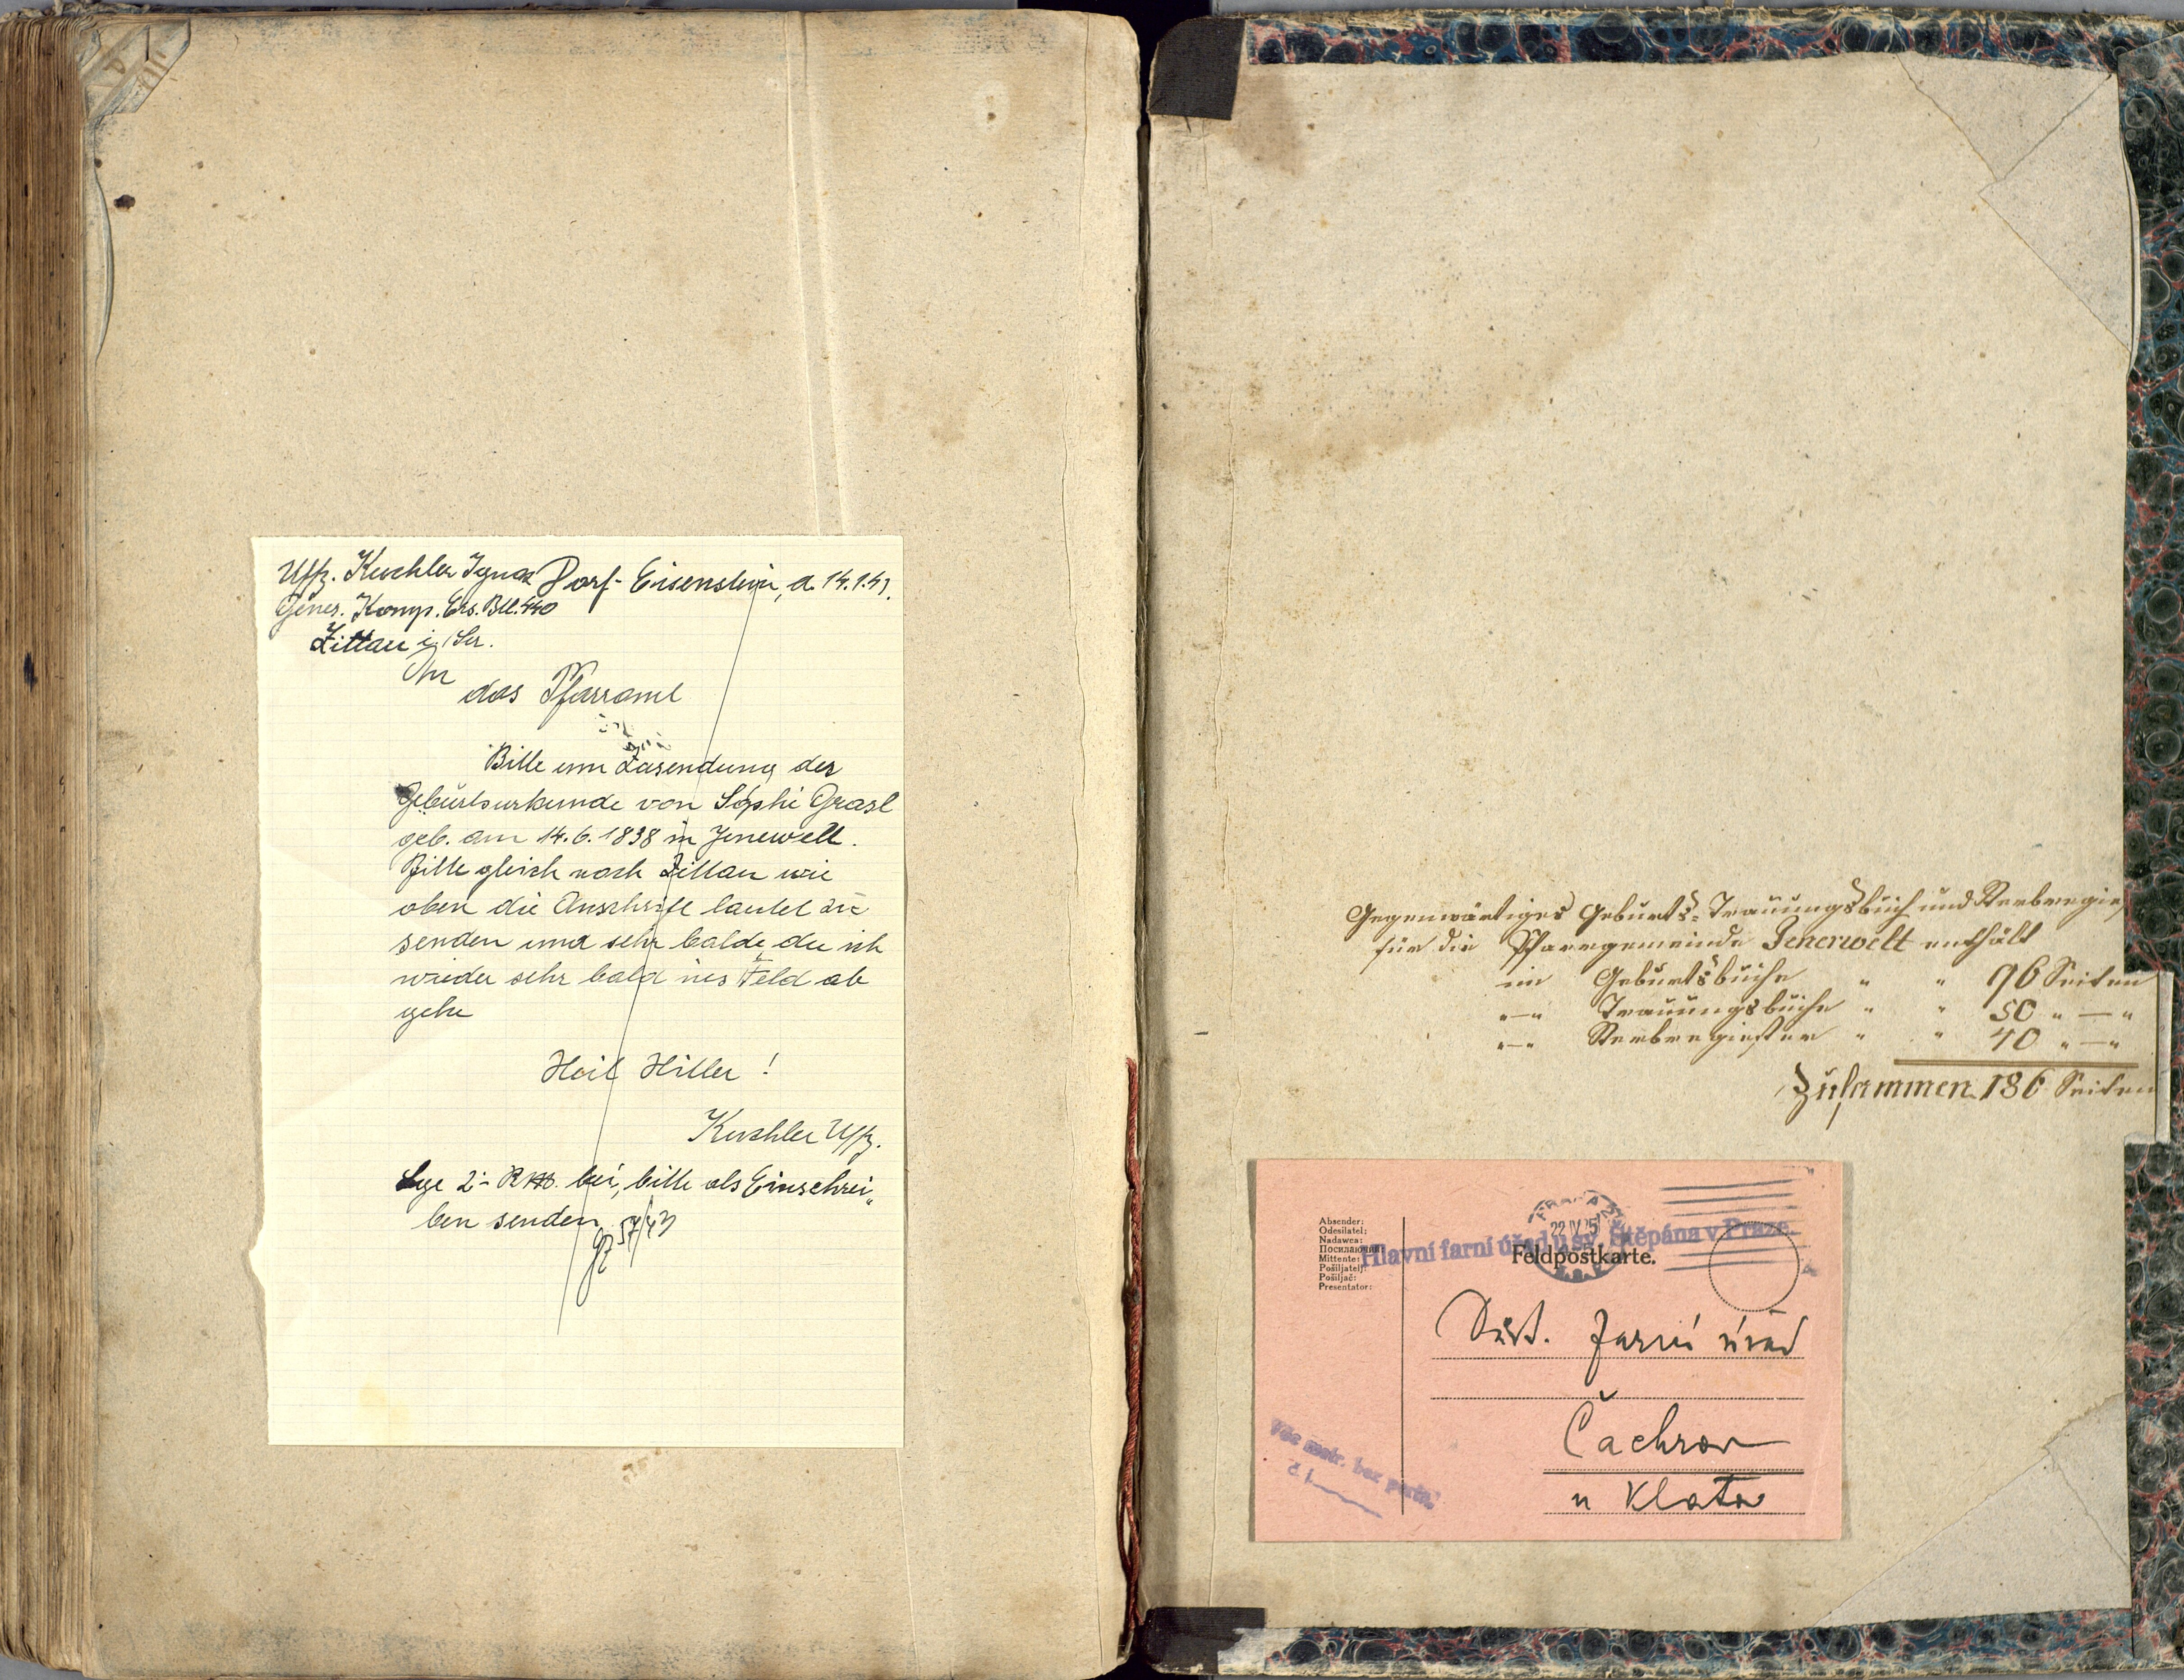 Uffz. Kuchler Ignaz Dorf-Eisenstein, d. 14.1.43.
Genes. Komp. Ers. Btl. 440
Zittau i. Sa.
An
das Pfarramt
Bitte um Zusendung der
Geburtsurkunde von Sophi Grasl
geb. am 14.6.1838 in Jenewelt.
Bitte gleich nach Zittau wie
oben die Anschrift lautet zu
senden und sehr balde, da ich
wieder sehr bald ins Feld ab
gehe
Heil Hitler!
Kuchler Uffz.
Lege 2.- RM. bei, bitte als Einschrei„
ben senden
57/43
Gegenwärtiges Geburts-Trauungsbuch und Sterberegis
für die Pfarrgemeinde Jenerwelt enthält
im Geburtsbuche " " 96 Seiten
"—" Trauungsbuche " " 50 "—"
"—" Sterberegister " " 40 "—"
Zusammen 186 Seiten
Absender:
Odesílatel:
Nadawca:
Посилаючий:
Mittente:
Pošiljatelj:
Pošiljač:
Presentator:
PRAHA
22 IV 25
Hlavní farní úřad u sv. Štěpána v Praze.
Feldpostkarte.
Důst. Farní úřad
Čachrov
u Klatov
Věc matr. bez porta.
č. j.